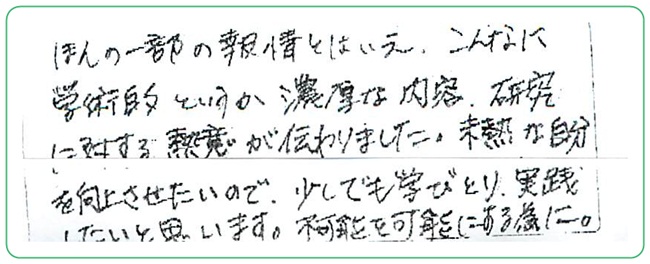 ほんの一部の報情とはいえ、こんなに
学術的というか濃厚な内容、研究
に対する熱意が伝わりました。未熟な自分
を向上させたいので、少しでも学びとり、実践
したいと思います。不可能を可能にする為に。